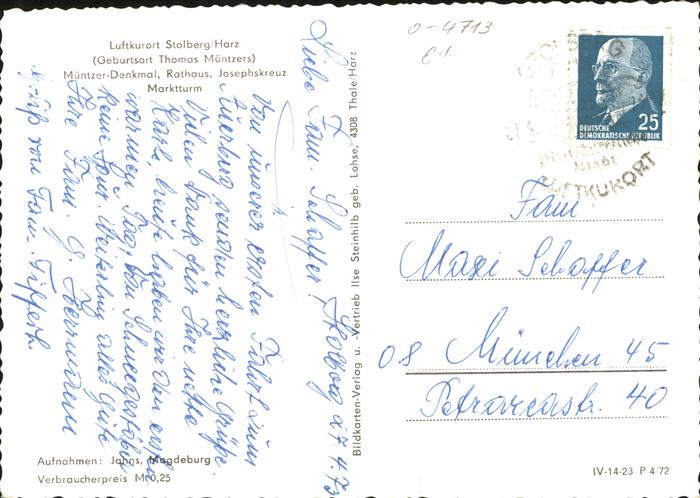 Luftkurort Stolberg/Harz
(Geburtsort Thomas Müntzers)
Müntzer-Denkmal, Rathaus, Josephskreuz
Marktturm
Liebe Fam. Schaffer! Stolberg 27.4.73
Von unserer ersten Fahrt zum
Auerberg senden herzliche Grüße.
Vielen Dank für Ihre nette
Karte, heute haben wir den ersten
warmen Tag, von Schneegestöber
keine Spur. Weiterhin alles Gute
Ihre Fam. G. Herrmann
Gruß von Fam. Tippert.
Aufnahmen: Jahns, Magdeburg
Verbraucherpreis M 0,25
Bildkarten-Verlag u. -Vertrieb Ilse Steinhilb geb. Lohse, 4308 Thale/Harz
0-4713
STOLBERG
LUFTKURORT
DEUTSCHE
DEMOKRATISCHE REPUBLIK
25
Fam.
Maxi Schaffer
08 München 45
Petrarcastr. 40
IV-14-23 P 4 72